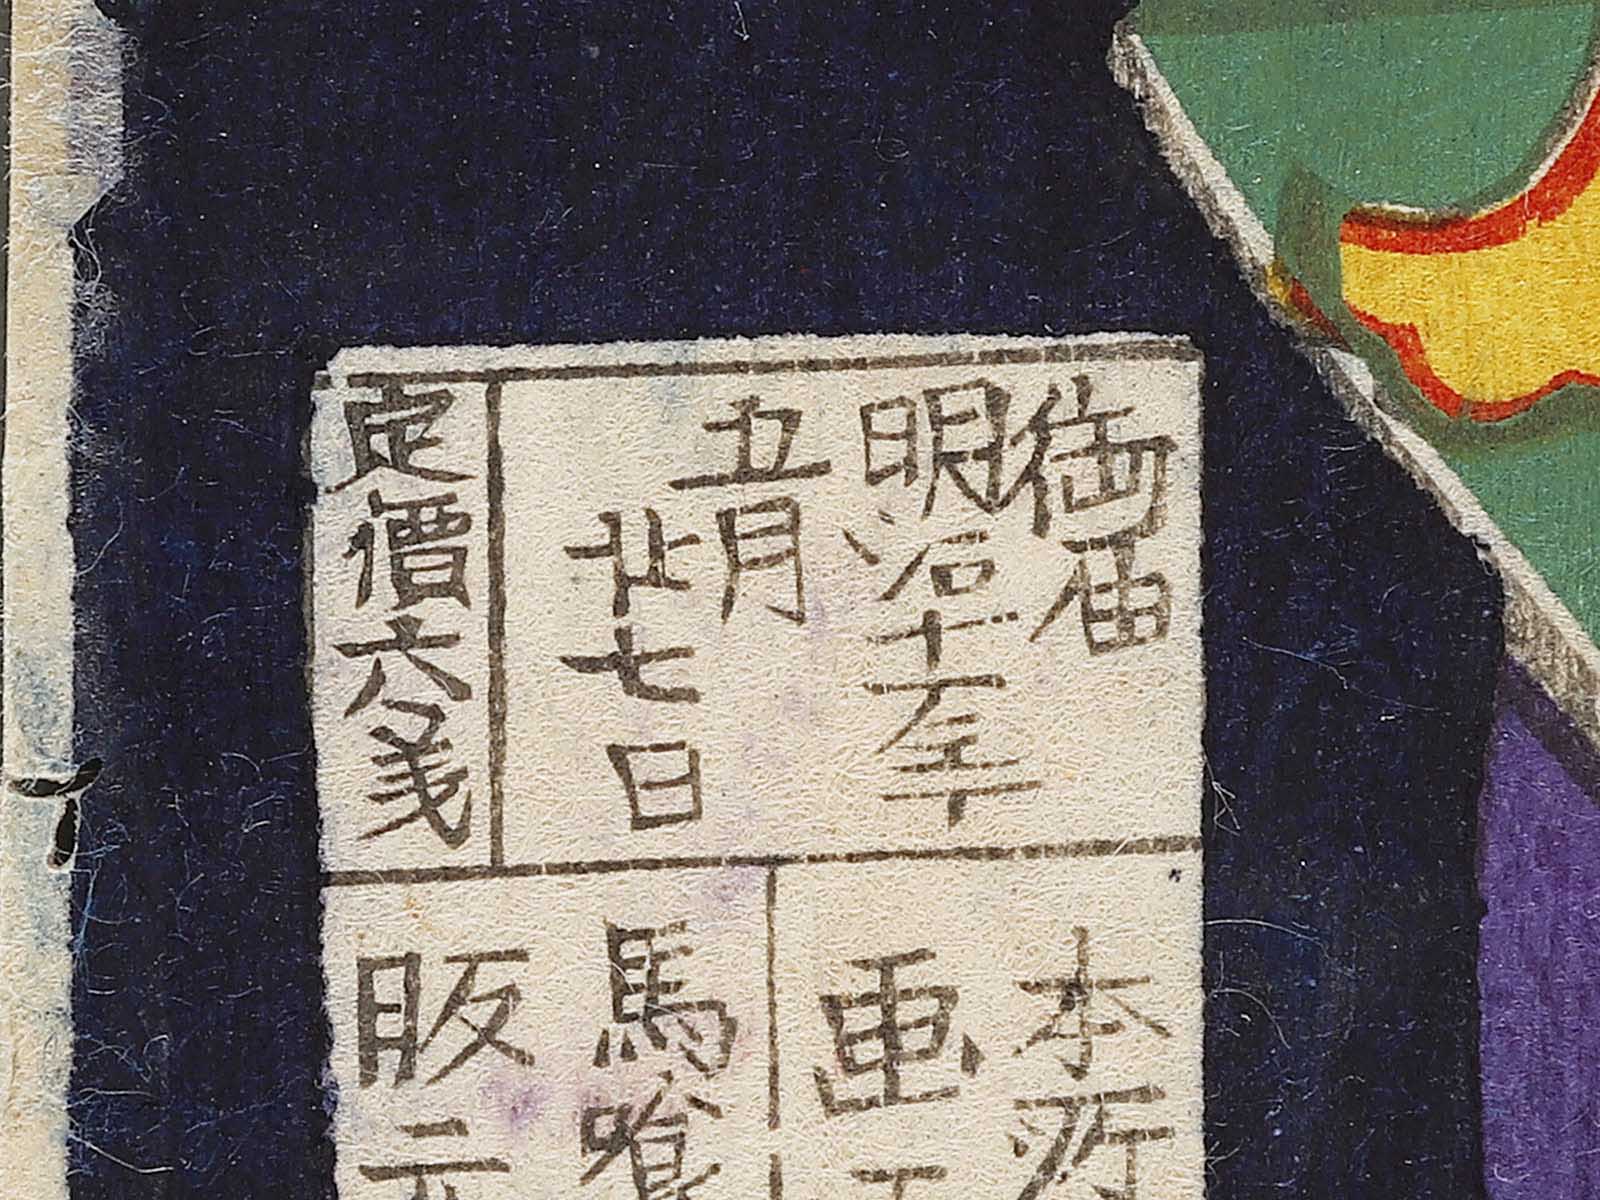 御届
明治十一年
五月
廿七日
定價六戔
本所
画工
馬喰
版元